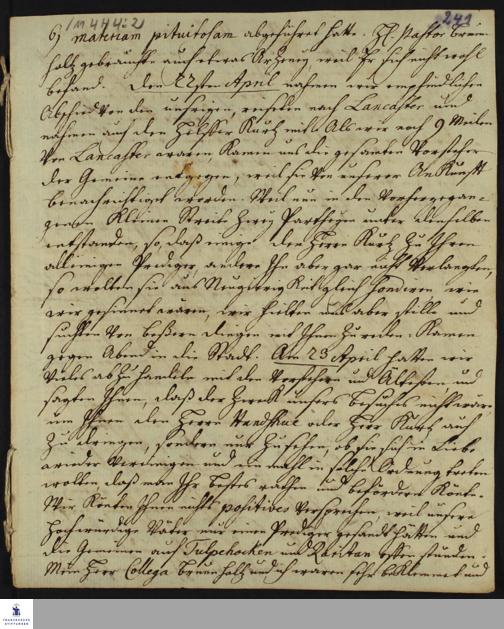 /11 444:2/ 241
6) materiam pituitosam abgeführet hatte. H. Pastor Brunn-
holz gebrauchte auch etwas Artzney weil Er sich nicht wohl
befand. Den 22sten April nahmen wir empfindlichen
Abschied von den unsrigen, reiseten nach Lancaster und
nahmen auch den Helffer Kurtz mit. Als wir noch 9 Meilen
von Lancaster waren kamen uns die gesamten Vorsteher
der Gemeine entgegen, weil sie von unserer Ankunfft
benachrichtiget worden. Weil nun in den vorhergegan-
genen kleinen Streit zwey Partheyen unter denselben
entstanden, so, daß einige den Herrn Kurtz zu Ihren
alleinigen Prediger, andere Ihn aber gar nicht verlangten,
so wolten sie aus Neugierigkeit gleich sondiren wie
wir gesinnet wären, wir hielten uns aber stille und
suchten von bessern dingen mit Ihnen zu reden. Kamen
gegen Abend in die Stadt. Am 23 April hatten wir
vieles abzuhandeln mit den Vorstehern und Ältesten und
sagten Ihnen, daß der Zweck unsers besuches nicht wäre
um Ihnen den Herrn Handschue oder Herr Kurtz auf
zu dringen, sondern nur zu sehen, ob sie sich in Liebe
wieder vereinigen und in solche Ordnung treten
wolten, daß man Ihr bestes rathen und befördern könte.
Wir könten Ihnen nichts positives versprechen, weil unsere
Hochwürdige Väter nur einen Prediger gesandt hätten und
die Gemeinen auf Tulpehocken und Raritan offen stünden.
Mein Herr Collega Brunnholtz und ich waren sehr beklemmet und
FRANCKESCHE
STIFTUNGEN